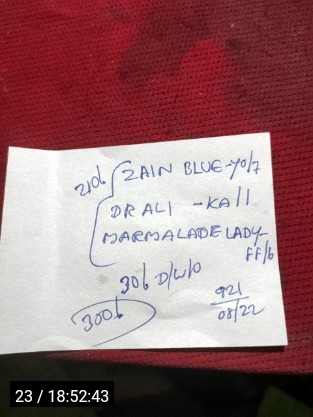 210b ZAIN BLUE-Yo/7
DR ALI -KA11
MARMALADE LADY-
FF/6
30b D/W/O
300b
921
08/22
23 / 18:52:43